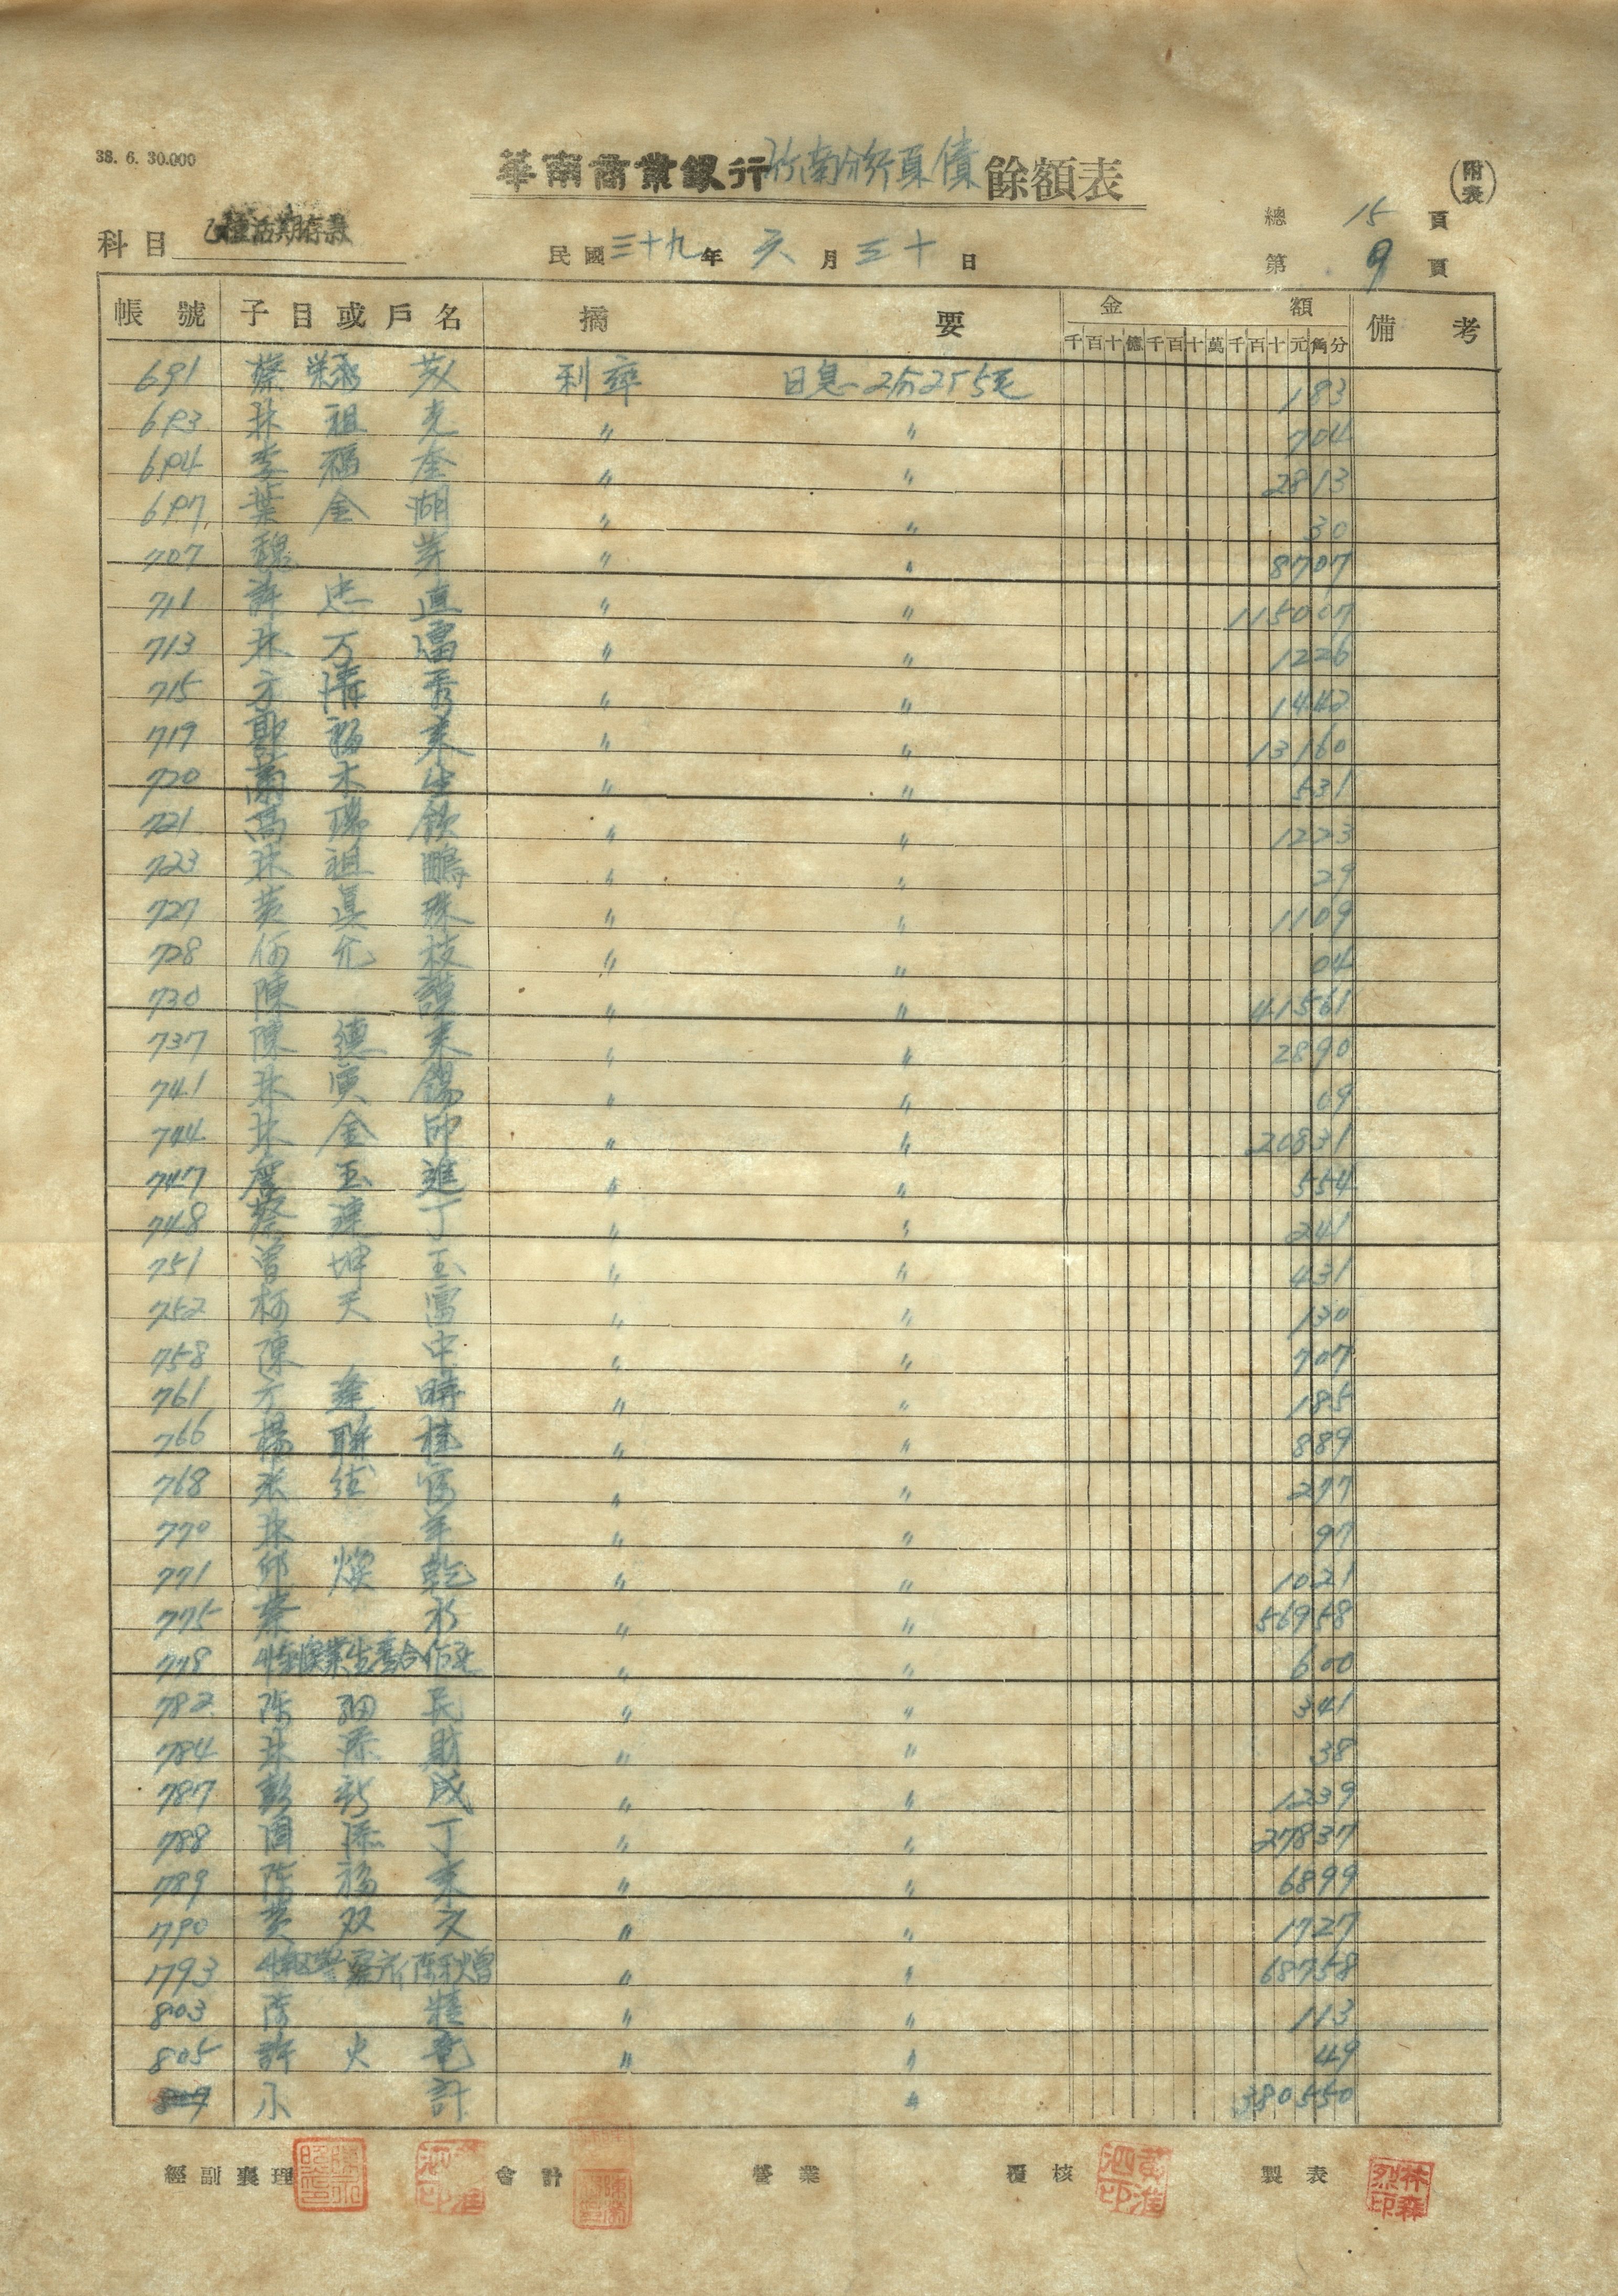 38. 6. 30.000
華南商業銀行竹南分行負債餘額表
(附表)
科目 乙種活期存款
民國三十九年六月三十日
總 15 頁
第 9 頁
帳號 子目或戶名 摘要 金額 備考
千百十億千百十萬千百十元角分
691 蔡 利率 日息 2分2厘5毛 183
693 林祖光 〃 〃 704
694 李福奎 〃 〃 2813
697 葉金湖 〃 〃 30
707 魏芽 〃 〃 8707
711 許忠直 〃 〃 115007
713 林万富 〃 〃 1226
715 方清秀 〃 〃 1442
719 鄭福来 〃 〃 13160
720 蕭木生 〃 〃 531
721 高 欽 〃 〃 1223
723 林祖鵬 〃 〃 29
727 黃真珠 〃 〃 1109
728 何允枝 〃 〃 04
730 陳 〃 〃 41561
737 陳德来 〃 〃 2890
741 林寅錫 〃 〃 69
744 林金帥 〃 〃 20831
747 詹玉進 〃 〃 554
748 蔡連丁 〃 〃 241
751 曾坤玉 〃 〃 431
752 柯天富 〃 〃 130
758 陳中 〃 〃 707
761 方逢時 〃 〃 185
766 楊聯桂 〃 〃 889
768 張 〃 〃 277
770 林羊 〃 〃 97
771 邱煥乾 〃 〃 1021
775 蔡水 〃 〃 56958
778 漁業生產合作社 〃 〃 600
782 陈 民 〃 〃 341
784 林添財 〃 〃 38
787 彭新成 〃 〃 1239
788 周添丁 〃 〃 27837
789 陈福来 〃 〃 6899
790 黃双文 〃 〃 1727
793 〃 〃 68758
803 陈 〃 〃 113
805 許火 〃 〃 49
小計 〃 380550
經副襄理 會計 營業 覆核 製表
黃泗淮印
林森烈印